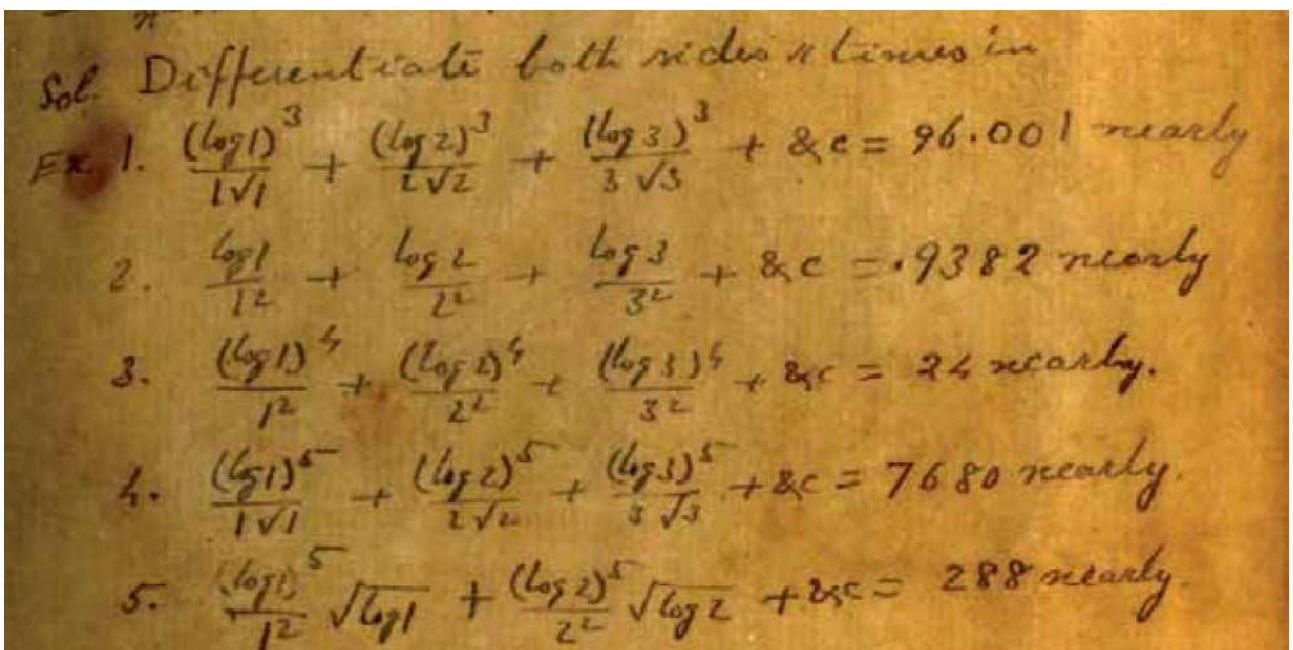 Sol. Differentiate both sides n times in
Ex 1. (log1)^3/1√1 + (log2)^3/2√2 + (log3)^3/3√3 + &c = 96.001 nearly
2. log1/1^2 + log2/2^2 + log3/3^2 + &c = .9382 nearly
3. (log1)^4/1^2 + (log2)^4/2^2 + (log3)^4/3^2 + &c = 24 nearly.
4. (log1)^5/1√1 + (log2)^5/2√2 + (log3)^5/3√3 + &c = 7680 nearly.
5. (log1)^5/1^2 √log1 + (log2)^5/2^2 √log2 + &c = 288 nearly.